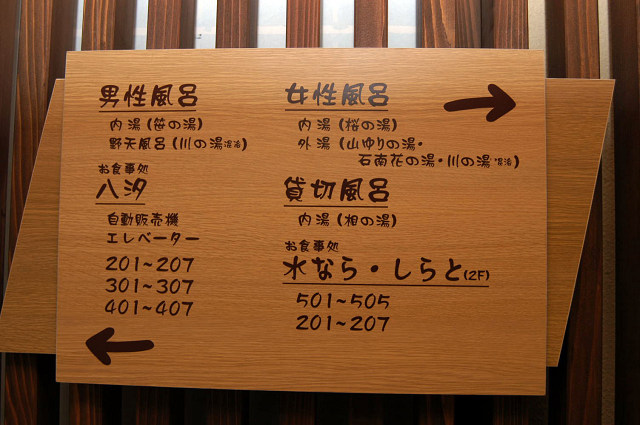 男性風呂
内湯(笹の湯)
野天風呂(川の湯混浴)
お食事処
八汐
自動販売機
エレベーター
201~207
301~307
401~407
女性風呂
内湯(桜の湯)
外湯(山ゆりの湯・
石南花の湯・川の湯混浴)
貸切風呂
内湯(相の湯)
お食事処
水なら・しらと(2F)
501~505
201~207